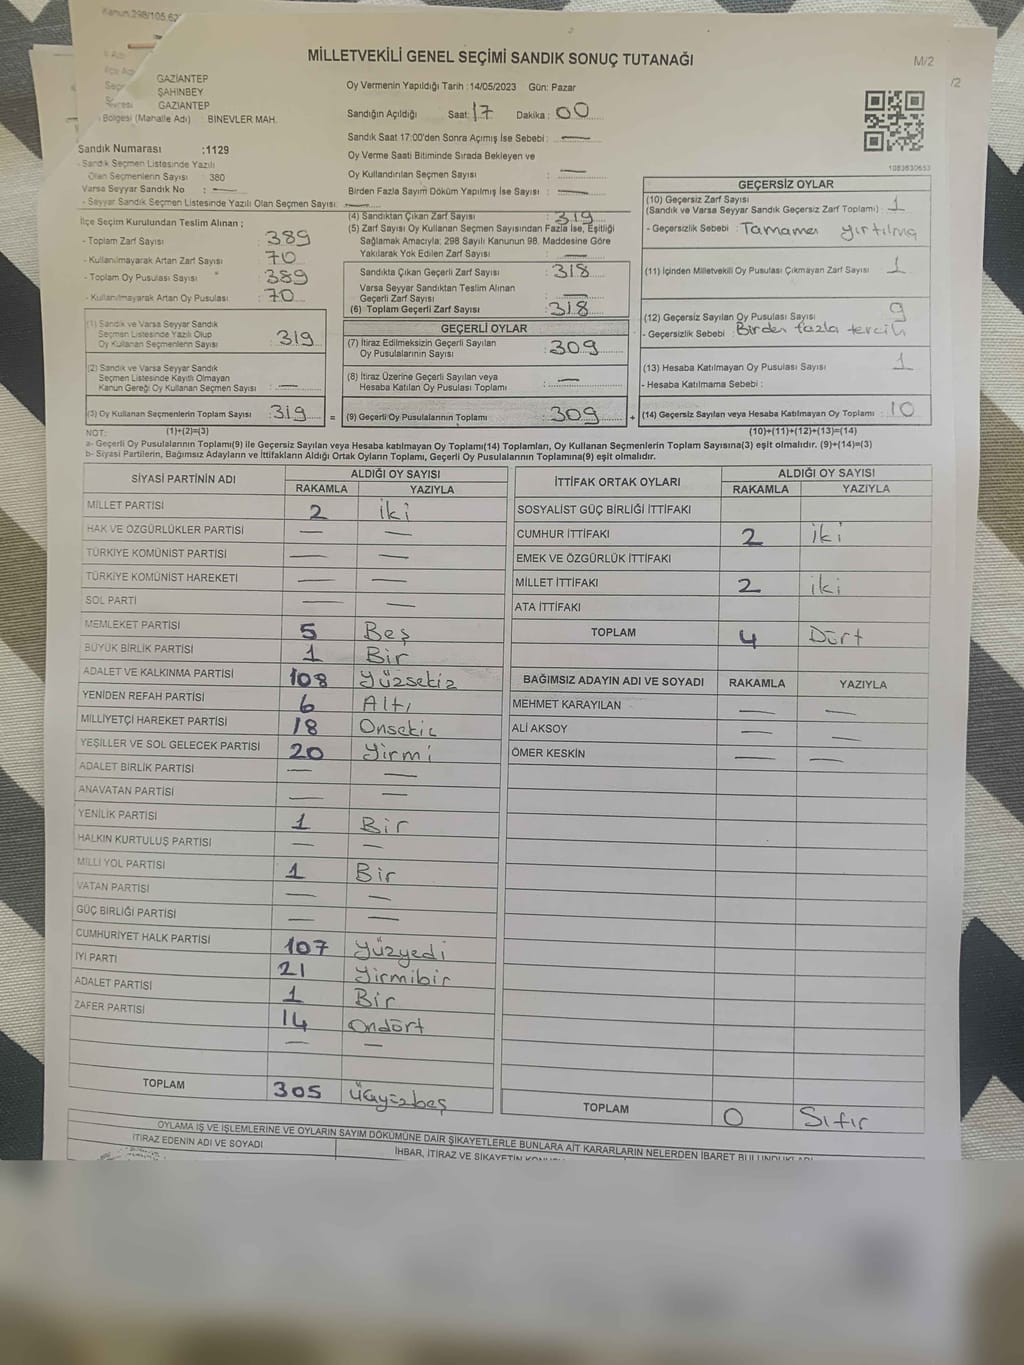 Kanun 298/105
MİLLETVEKİLİ GENEL SEÇİMİ SANDIK SONUÇ TUTANAĞI
M/2
/2
GAZİANTEP
ŞAHİNBEY
GAZİANTEP
Bölgesi (Mahalle Adı) : BİNEVLER MAH.
Oy Vermenin Yapıldığı Tarih : 14/05/2023 Gün: Pazar
Sandığın Açıldığı Saat: 17 Dakika : 00
Sandık Saat 17:00'den Sonra Açımış İse Sebebi : —
Oy Verme Saati Bitiminde Sırada Bekleyen ve
Oy Kullandırılan Seçmen Sayısı : —
Birden Fazla Sayım Döküm Yapılmış İse Sayısı : —
Sandık Numarası :1129
- Sandık Seçmen Listesinde Yazılı
Olan Seçmenlerin Sayısı : 380
Varsa Seyyar Sandık No : —
- Seyyar Sandık Seçmen Listesinde Yazılı Olan Seçmen Sayısı: —
1083630653
İlçe Seçim Kurulundan Teslim Alınan ;
- Toplam Zarf Sayısı : 389
- Kullanılmayarak Artan Zarf Sayısı : 70
- Toplam Oy Pusulası Sayısı : 389
- Kullanılmayarak Artan Oy Pusulası : 70
(1) Sandık ve Varsa Seyyar Sandık
Seçmen Listesinde Yazılı Olup
Oy Kullanan Seçmenlerin Sayısı : 319
(2) Sandık ve Varsa Seyyar Sandık
Seçmen Listesinde Kayıtlı Olmayan
Kanun Gereği Oy Kullanan Seçmen Sayısı : —
(3) Oy Kullanan Seçmenlerin Toplam Sayısı : 319 =
(4) Sandıktan Çıkan Zarf Sayısı : 319
(5) Zarf Sayısı Oy Kullanan Seçmen Sayısından Fazla İse, Eşitliği
Sağlamak Amacıyla; 298 Sayılı Kanunun 98. Maddesine Göre
Yakılarak Yok Edilen Zarf Sayısı : —
Sandıkta Çıkan Geçerli Zarf Sayısı : 318
Varsa Seyyar Sandıktan Teslim Alınan
Geçerli Zarf Sayısı : —
(6) Toplam Geçerli Zarf Sayısı : 318
GEÇERLİ OYLAR
(7) İtiraz Edilmeksizin Geçerli Sayılan
Oy Pusulalarının Sayısı : 309
(8) İtiraz Üzerine Geçerli Sayılan veya
Hesaba Katılan Oy Pusulası Toplamı : —
(9) Geçerli Oy Pusulalarının Toplamı : 309 +
GEÇERSİZ OYLAR
(10) Geçersiz Zarf Sayısı
(Sandık ve Varsa Seyyar Sandık Geçersiz Zarf Toplamı) : 1
- Geçersizlik Sebebi : Tamamen yırtılmış
(11) İçinden Milletvekili Oy Pusulası Çıkmayan Zarf Sayısı : 1
(12) Geçersiz Sayılan Oy Pusulası Sayısı : 9
- Geçersizlik Sebebi : Birden fazla tercih
(13) Hesaba Katılmayan Oy Pusulası Sayısı : 1
- Hesaba Katılmama Sebebi :
(14) Geçersiz Sayılan veya Hesaba Katılmayan Oy Toplamı : 10
NOT: (1)+(2)=(3) (10)+(11)+(12)+(13)=(14)
a- Geçerli Oy Pusulalarının Toplamı(9) ile Geçersiz Sayılan veya Hesaba katılmayan Oy Toplamı(14) Toplamları, Oy Kullanan Seçmenlerin Toplam Sayısına(3) eşit olmalıdır. (9)+(14)=(3)
b- Siyasi Partilerin, Bağımsız Adayların ve İttifakların Aldığı Ortak Oyların Toplamı, Geçerli Oy Pusulalarının Toplamına(9) eşit olmalıdır.
SİYASİ PARTİNİN ADI ALDIĞI OY SAYISI
RAKAMLA YAZIYLA
MİLLET PARTİSİ 2 iki
HAK VE ÖZGÜRLÜKLER PARTİSİ — —
TÜRKİYE KOMÜNİST PARTİSİ — —
TÜRKİYE KOMÜNİST HAREKETİ — —
SOL PARTİ — —
MEMLEKET PARTİSİ 5 Beş
BÜYÜK BİRLİK PARTİSİ 1 Bir
ADALET VE KALKINMA PARTİSİ 108 Yüzsekiz
YENİDEN REFAH PARTİSİ 6 Altı
MİLLİYETÇİ HAREKET PARTİSİ 18 Onsekiz
YEŞİLLER VE SOL GELECEK PARTİSİ 20 Yirmi
ADALET BİRLİK PARTİSİ — —
ANAVATAN PARTİSİ — —
YENİLİK PARTİSİ 1 Bir
HALKIN KURTULUŞ PARTİSİ — —
MİLLİ YOL PARTİSİ 1 Bir
VATAN PARTİSİ — —
GÜÇ BİRLİĞİ PARTİSİ — —
CUMHURİYET HALK PARTİSİ 107 Yüzyedi
İYİ PARTİ 21 Yirmibir
ADALET PARTİSİ 1 Bir
ZAFER PARTİSİ 14 Ondört
— —
TOPLAM 305 üçyüzbeş
İTTİFAK ORTAK OYLARI ALDIĞI OY SAYISI
RAKAMLA YAZIYLA
SOSYALİST GÜÇ BİRLİĞİ İTTİFAKI
CUMHUR İTTİFAKI 2 iki
EMEK VE ÖZGÜRLÜK İTTİFAKI
MİLLET İTTİFAKI 2 iki
ATA İTTİFAKI
TOPLAM 4 Dört
BAĞIMSIZ ADAYIN ADI VE SOYADI RAKAMLA YAZIYLA
MEHMET KARAYILAN — —
ALİ AKSOY — —
ÖMER KESKİN — —
TOPLAM 0 Sıfır
OYLAMA İŞ VE İŞLEMLERİNE VE OYLARIN SAYIM DÖKÜMÜNE DAİR ŞİKAYETLERLE BUNLARA AİT KARARLARIN NELERDEN İBARET BULUNDUKLARI
İTİRAZ EDENİN ADI VE SOYADI
İHBAR, İTİRAZ VE ŞİKAYETİN